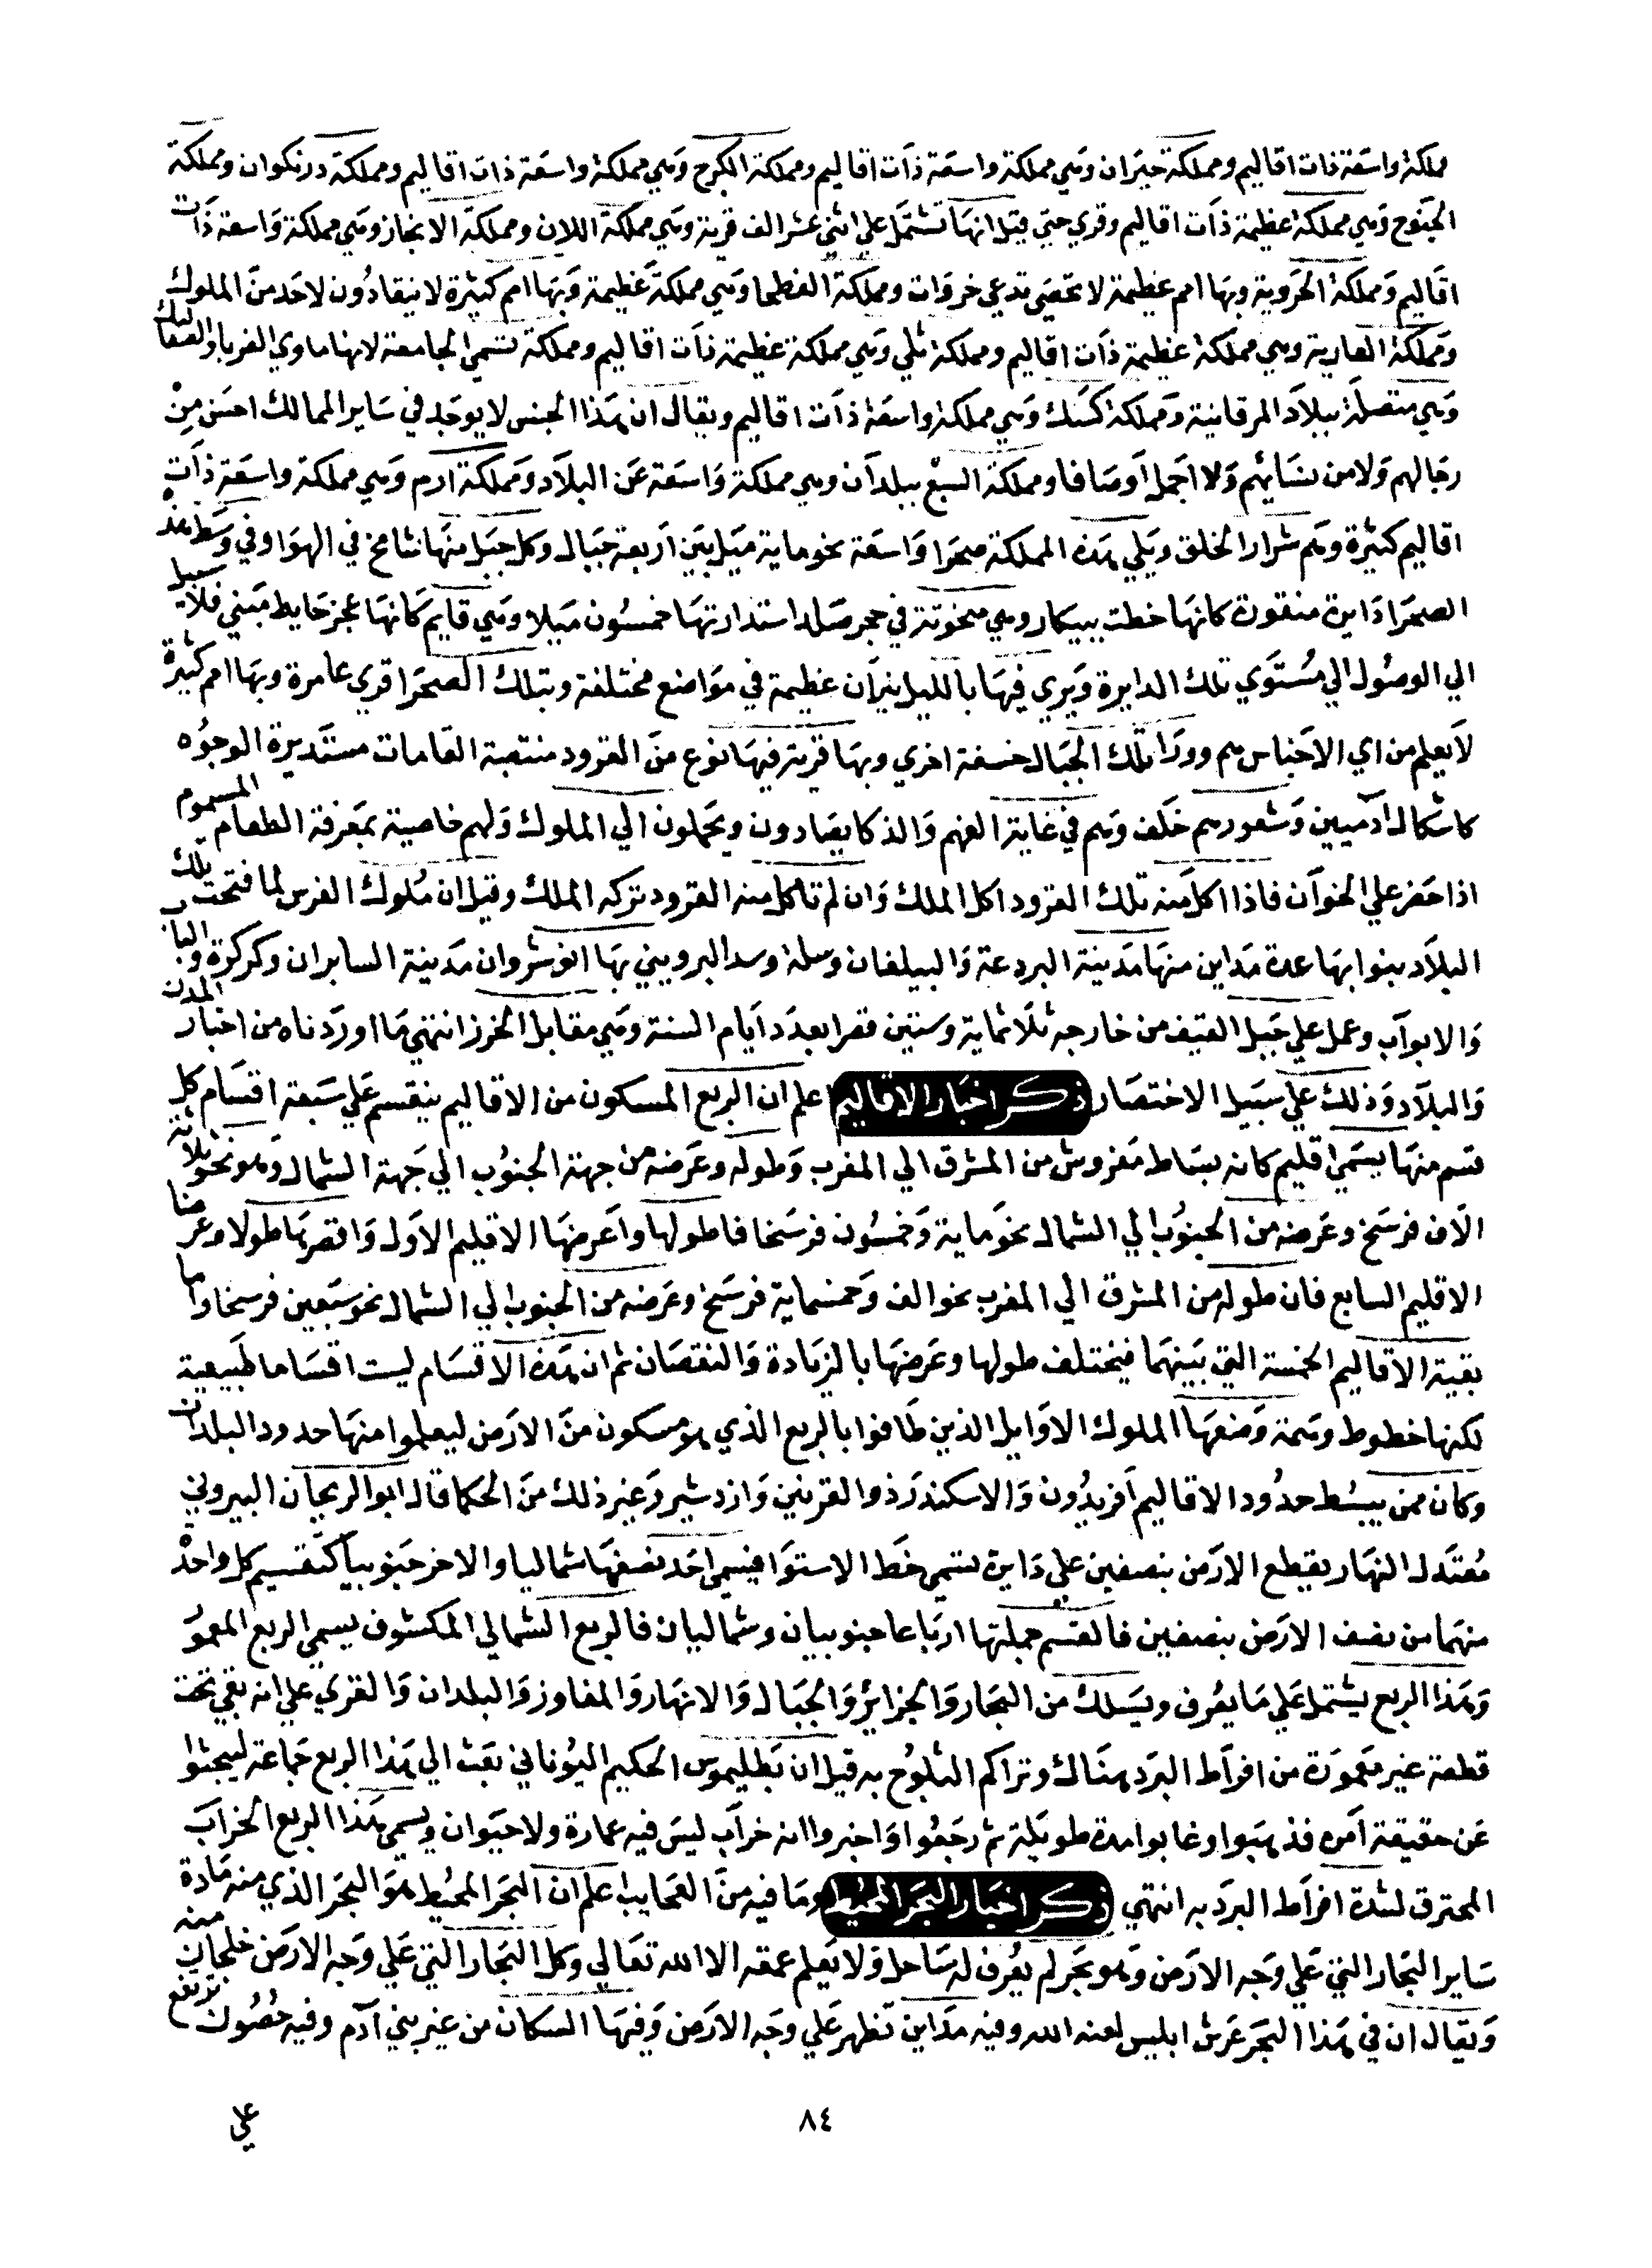 مملكة واسعة ذات اقاليم ومملكة خيزان وهي مملكة واسعة ذات اقاليم ومملكة الكرج وهي مملكة واسعة ذات اقاليم ومملكة درنكوان ومملكة
وهي مملكة عظيمة ذات اقاليم وقري حتي قيل انها تشتمل علي اثني عشر الف قرية وهي مملكة اللان ومملكة الابخاز وهي مملكة واسعة ذات
اقاليم ومملكة الخروية وبها امم عظيمة لا تحصي تدعي خروات ومملكة الفطحا وهي مملكة عظيمة وبها امم كثيرة لا ينقادون لاحد من الملوك
ومملكة العارية وهي مملكة عظيمة ذات اقاليم ومملكة تلي وهي مملكة عظيمة ذات اقاليم ومملكة تسمي الجامعة لانها ماوي الغربا والصعاليك
وهي متصلة ببلاد المرقانية ومملكة كسك وهي مملكة واسعة ذات اقاليم ويقال ان هذا الجنس لا يوجد في ساير الممالك احسن من
رجالهم ولا من نسايهم ولا اجمل اوصافا ومملكة السبع ببلدان وهي مملكة واسعة عن البلاد ومملكة ارم وهي مملكة واسعة ذات
اقاليم كثيرة وهم شرار الخلق ويلي هذه المملكة صحرا واسعة نحو ماية ميل بين اربعة جبال وكل جبل منها شامخ في الهوا وفي وسط هذه
الصحرا دايرة منقورة كانها خطت ببيكار وهي منحوتة في حجر صلد استدارتها خمسون ميلا وهي قايم كانها عجز حايط مبني فلا سبيل
الي الوصول الي مستوي تلك الدايرة ويري فيها بالليل نيران عظيمة في مواضع مختلفة وبتلك الصحرا قري عامرة وبها امم كثيرة
لا يعلم من اي الاجناس هم وورا تلك الجبال خسفة اخري وبها قرية فيها نوع من القرود منتصبة القامات مستديرة الوجوه
كاشكال آدميين وشعورهم خلف وهم في غاية الفهم والذكا يصادون ويحملون الي الملوك ولهم خاصية بمعرفة الطعام المسموم
اذا حضر علي الخوان فاذا اكل منه تلك القرود اكل الملك وان لم تاكل منه القرود تركه الملك وقيل ان ملوك الفرس لما فتحت تلك
البلاد بنوا بها عدة مداين منها مدينة البردعة والبيلقان وسلة وسد البرو بني بها انوشروان مدينة السابران وكركرة والباب
والابواب وعمل علي جبل الفتيف من خارجه ثلاثماية وستين قصرا بعدد ايام السنة وهي مقابل الخزر انتهي ما اوردناه من اخبار المدن
والبلاد وذلك علي سبيل الاختصار ذكر اخبار الاقاليم اعلم ان الربع المسكون من الاقاليم ينقسم علي سبعة اقسام كل
قسم منها يسمي اقليم كانه بساط مفروش من المشرق الي المغرب وطوله وعرضه من جهة الجنوب الي جهة الشمال وهو نحو ثلاثة
الاف فرسخ وعرضه من الجنوب الي الشمال نحو ماية وخمسون فرسخا فاطولها واعرضها الاقليم الاول واقصرها طولا وعرضا
الاقليم السابع فان طوله من المشرق الي المغرب نحو الف وخمسماية فرسخ وعرضه من الجنوب الي الشمال نحو سبعين فرسخا واما
بقية الاقاليم الخمسة التي بينهما فيختلف طولها وعرضها بالزيادة والنقصان ثم ان هذه الاقسام ليست اقساما طبيعية
لكنها خطوط وهمة وضعها الملوك الاوايل الذين طافوا بالربع الذي هو مسكون من الارض ليعلموا منها حدود البلدان
وكان ممن يبسط حدود الاقاليم افريدون والاسكندر ذو القرنين وازدشير وغير ذلك من الحكما قال ابو الريحان البيروني
معتدل النهار يقطع الارض بنصفين علي دايرة تسمي خط الاستوا فيسمي احد نصفها شماليا والاخر جنوبيا كتقسيم كل واحدة
منهما من نصف الارض بنصفين فالقسم جملتها ارباعا جنوبيان وشماليان فالربع الشمالي المكشوف يسمي الربع المعمور
وهذا الربع يشتمل علي ما يعرف ويسلك من البحار والجزائر والجبال والانهار والمفاوز والبلدان والقري علي انه بقي تحت
قطعة غير معمورة من افراط البرد هناك وتراكم الثلوج به قيل ان بطليموس الحكيم اليوناني بعث الي هذا الربع جماعة ليبحثوا
عن حقيقة امره فذهبوا وغابوا مدة طويلة ثم رجعوا واخبروا انه خراب ليس فيه عمارة ولا حيوان ويسمي هذا الربع الخراب
المحترق لشدة افراط البرد به انتهي ذكر اخبار البحر المحيط وما فيه من العجايب اعلم ان البحر المحيط هو البحر الذي منه مادة
ساير البحار التي علي وجه الارض وهو بحر لم يعرف له ساحل ولا يعلم عمقه الا الله تعالي وكل البحار التي علي وجه الارض خلجان منه
ويقال ان في هذا البحر عرش ابليس لعنه الله وفيه مداين تظهر علي وجه الارض وفيها السكان من غير بني آدم وفيه حصون ترتفع
علي
٨٤